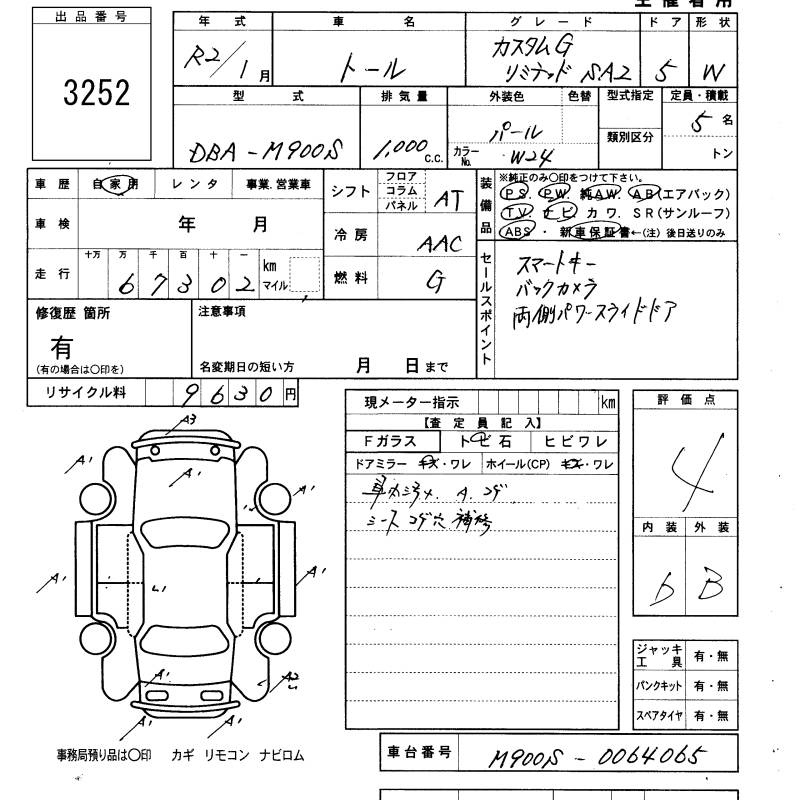 主催者用
出品番号
3252
年式 車名 グレード ドア 形状
R2/1月 トール カスタムG リミテッド SA2 5 W
型式 排気量 外装色 色替 型式指定 定員・積載
DBA-M900S 1,000 c.c. パール カラーNo. W24 類別区分 5名 トン
車歴 自家用 レンタ 事業.営業車
車検 年 月
走行 十万 万 千 百 十 一 km マイル
67302
シフト フロア コラム パネル AT
冷房 AAC
燃料 G
装備品 ※純正のみ○印をつけて下さい。
PS. PW. 純AW. AB(エアバック)
TV. ナビ カワ. SR(サンルーフ)
ABS・新車保証書←(注)後日送りのみ
セールスポイント
スマートキー
バックカメラ
両側パワースライドドア
修復歴 箇所
有
(有の場合は○印を)
注意事項
名変期日の短い方 月 日まで
リサイクル料 9630円
現メーター指示 km
【査定員記入】
Fガラス トビ石 ヒビワレ
ドアミラー キズ・ワレ ホイール(CP) キズ・ワレ
A. コゲ
シート コゲ穴 補修
評価点
4
内装 外装
b B
A3
A1 A1 A1
A1 A1
A1 A2
A1 A1
ジャッキ工具 有・無
パンクキット 有・無
スペアタイヤ 有・無
事務局預り品は○印 カギ リモコン ナビロム
車台番号 M900S-0064065